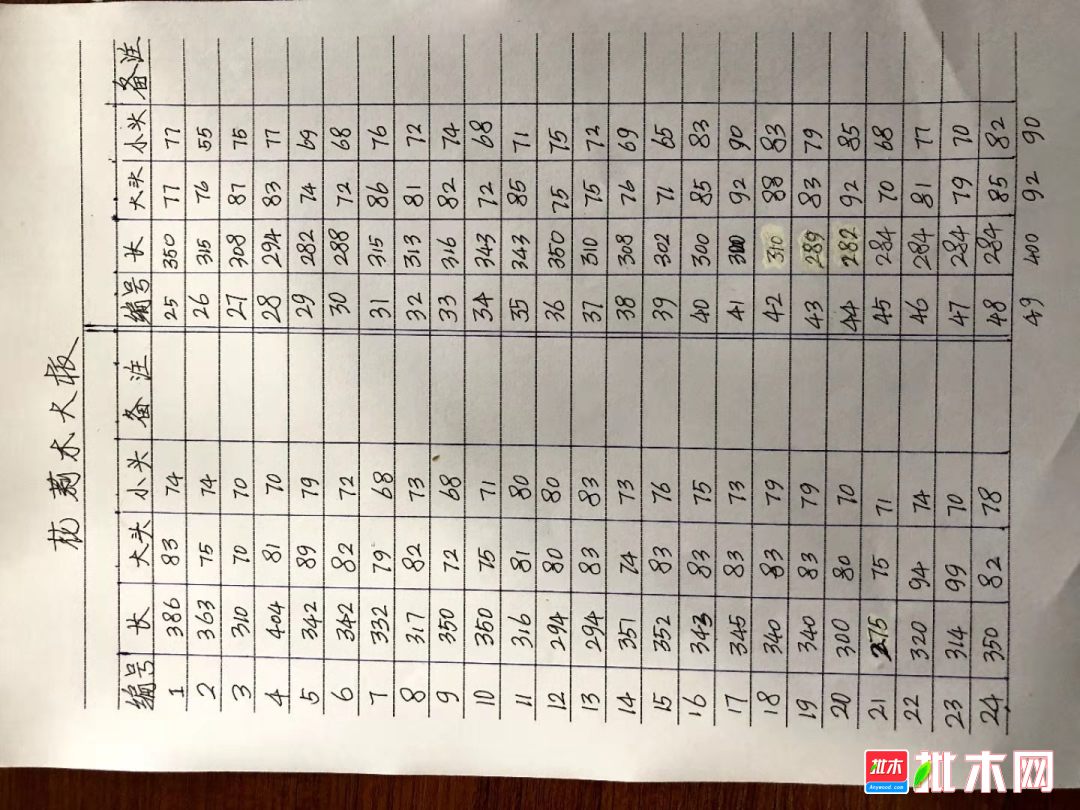 花梨木大板
编号 长 大头 小头 备注 编号 长 大头 小头 备注
1 386 83 74 25 350 77 77
2 363 75 74 26 315 76 55
3 310 70 70 27 308 87 75
4 404 81 70 28 294 83 77
5 342 89 79 29 282 74 69
6 342 82 72 30 288 72 68
7 332 79 68 31 315 86 76
8 317 82 73 32 313 81 72
9 350 72 68 33 316 82 74
10 350 75 71 34 343 72 68
11 316 81 80 35 343 85 71
12 294 80 80 36 350 75 75
13 294 83 83 37 310 75 72
14 351 74 73 38 308 76 69
15 352 83 76 39 302 71 65
16 343 83 75 40 300 85 83
17 345 83 73 41 300 92 90
18 340 83 79 42 310 88 83
19 340 83 79 43 289 83 79
20 300 80 70 44 282 92 85
21 275 75 71 45 284 70 68
22 320 94 74 46 284 81 77
23 314 99 70 47 284 79 70
24 350 82 78 48 284 85 82
49 400 92 90
批木
Anywood.com
批木网